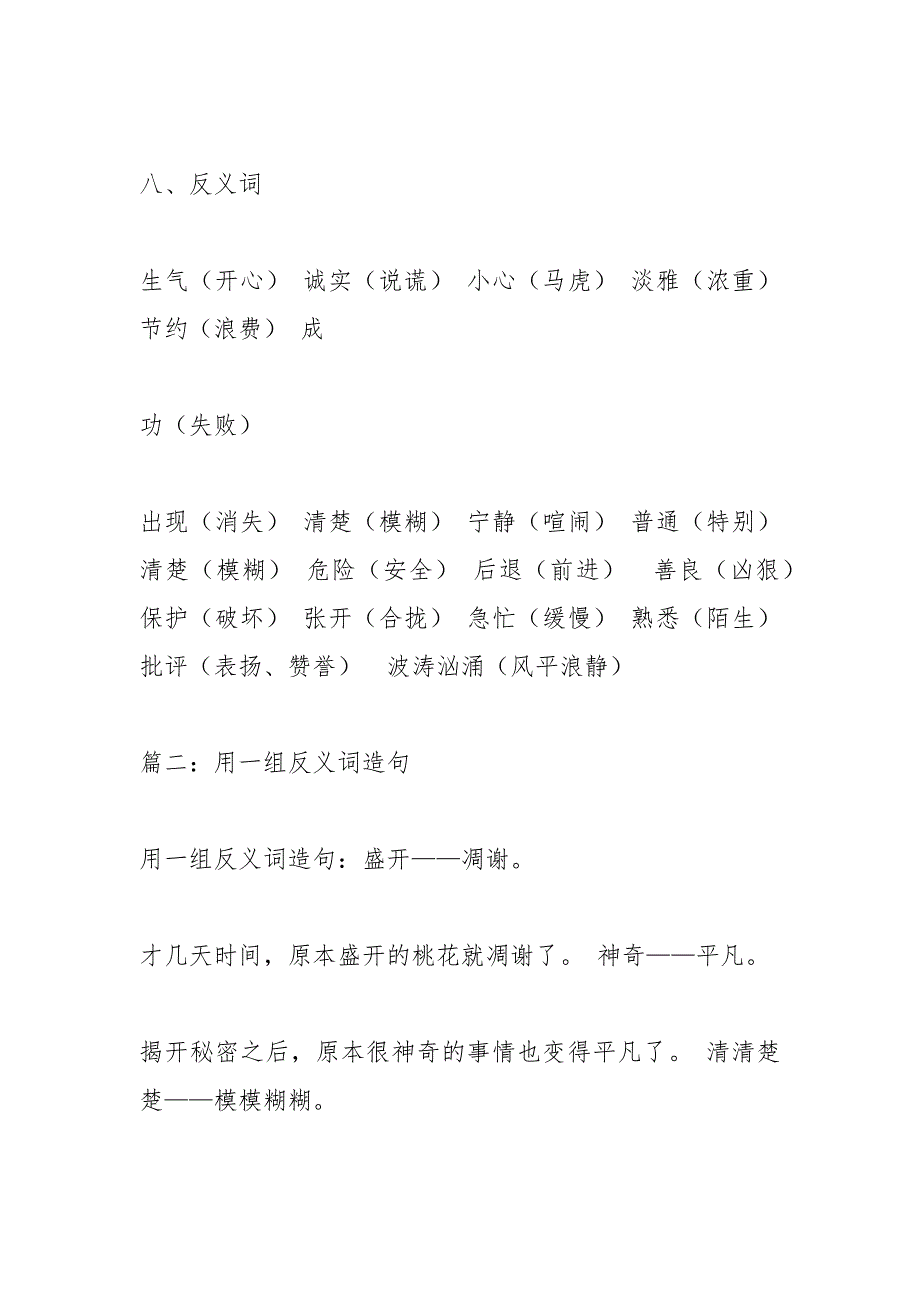 八、反义词
生气（开心） 诚实（说谎） 小心（马虎） 淡雅（浓重）
节约（浪费） 成
功（失败）
出现（消失） 清楚（模糊） 宁静（喧闹） 普通（特别）
清楚（模糊） 危险（安全） 后退（前进） 善良（凶狠）
保护（破坏） 张开（合拢） 急忙（缓慢） 熟悉（陌生）
批评（表扬、赞誉） 波涛汹涌（风平浪静）
篇二：用一组反义词造句
用一组反义词造句：盛开——凋谢。
才几天时间，原本盛开的桃花就凋谢了。 神奇——平凡。
揭开秘密之后，原本很神奇的事情也变得平凡了。 清清楚
楚——模模糊糊。